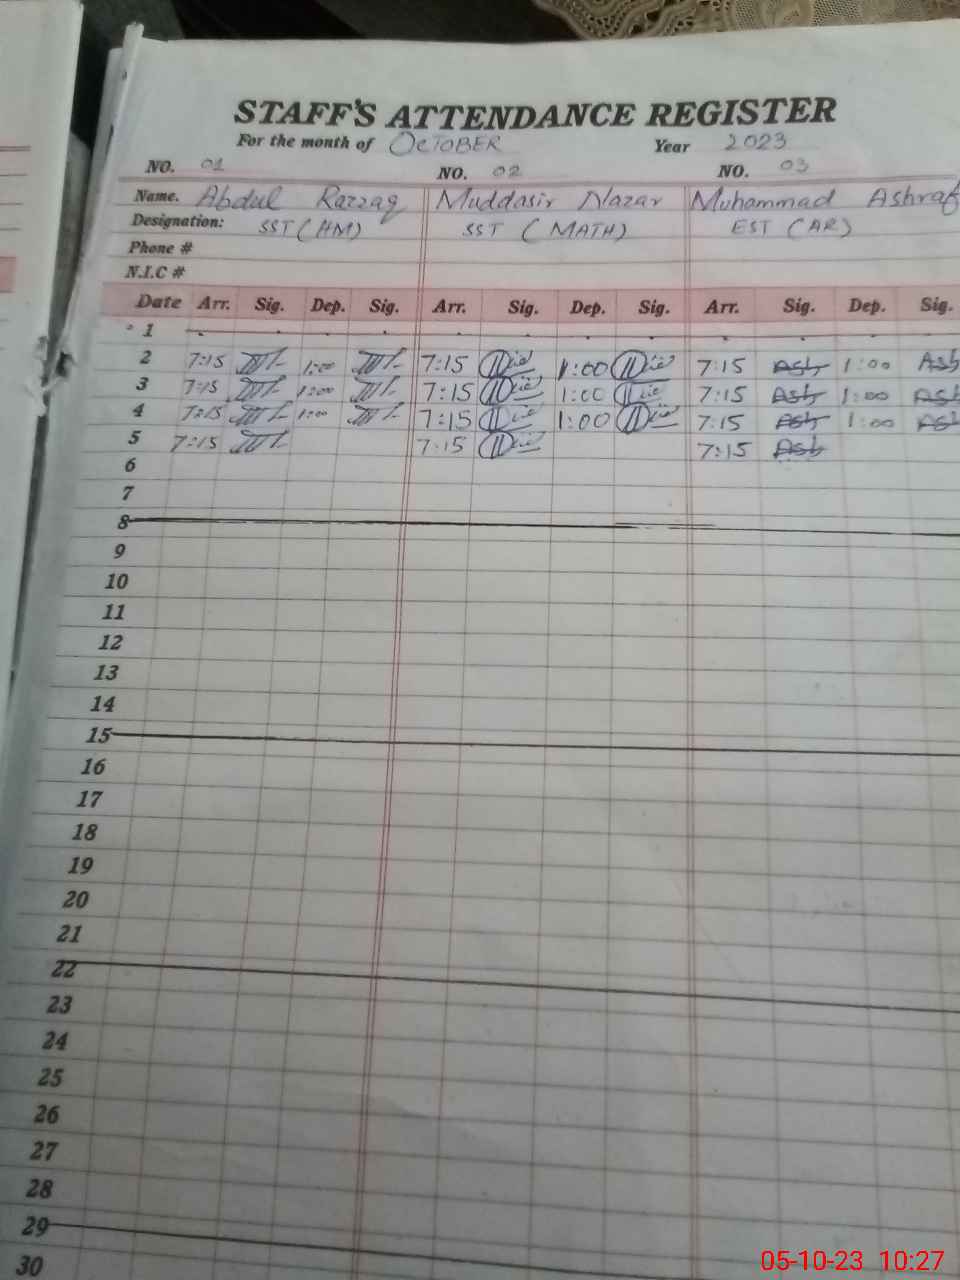 STAFF'S ATTENDANCE REGISTER
For the month of OCTOBER Year 2023
NO. 01 NO. 02 NO. 03
Name. Abdul Razzaq Muddasir Nazar Muhammad Ashraf
Designation: SST (HM) SST (MATH) EST (AR)
Phone #
N.I.C #
Date Arr. Sig. Dep. Sig. Arr. Sig. Dep. Sig. Arr. Sig. Dep. Sig.
1
2 7:15 1:00 7:15 1:00 7:15 Ash 1:00 Ash
3 7:15 1:00 7:15 1:00 7:15 Ash 1:00 Ash
4 7:15 1:00 7:15 1:00 7:15 Ash 1:00 Ash
5 7:15 7:15 7:15 Ash
6
7
8
9
10
11
12
13
14
15
16
17
18
19
20
21
22
23
24
25
26
27
28
29
30
05-10-23 10:27